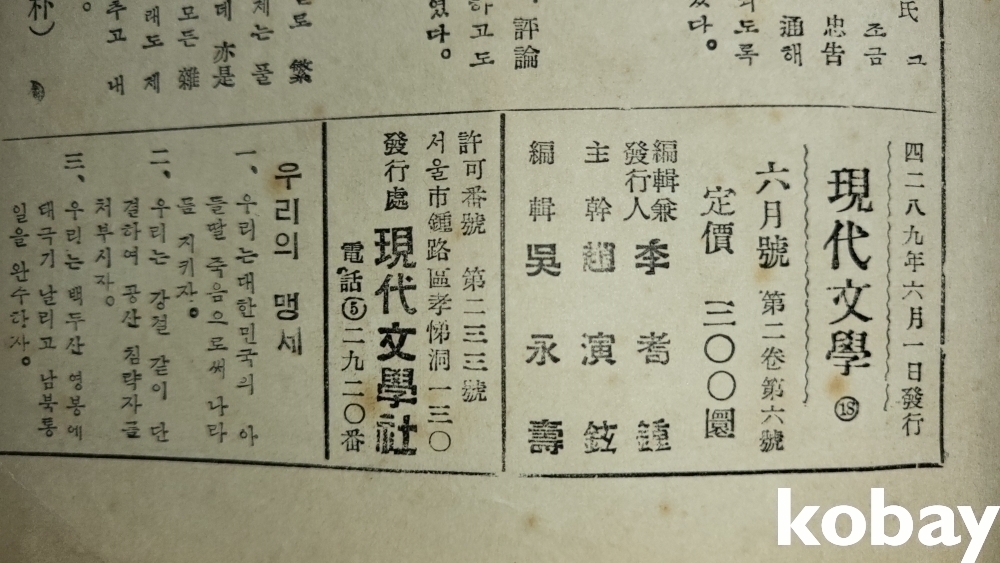 氏 그
조금
忠告
通해
되도록
었다。
評論
하고도
였다。
로 繁
체는 풀
데 亦是
모든 雜
래도 제
추고 내
朴)
四二八九年六月一日發行
現代文學 ⑱
六月號 第二卷第六號
定價 三〇〇圜
編輯兼
發行人 李 耉 鍾
主幹 趙 演 鉉
編輯 吳 永 壽
許可番號 第二三三號
서울市鍾路區孝悌洞一三〇
發行處 現代文學社
電話⑤二九二〇番
우리의 맹세
一、우리는대한민국의 아
들딸 죽음으로써 나라
를 지키자。
二、우리는 강철 같이 단
결하여 공산 침략자를
처부시자。
三、우리는 백두산 영봉에
태극기 날리고 남북통
일을 완수하자。
kobay